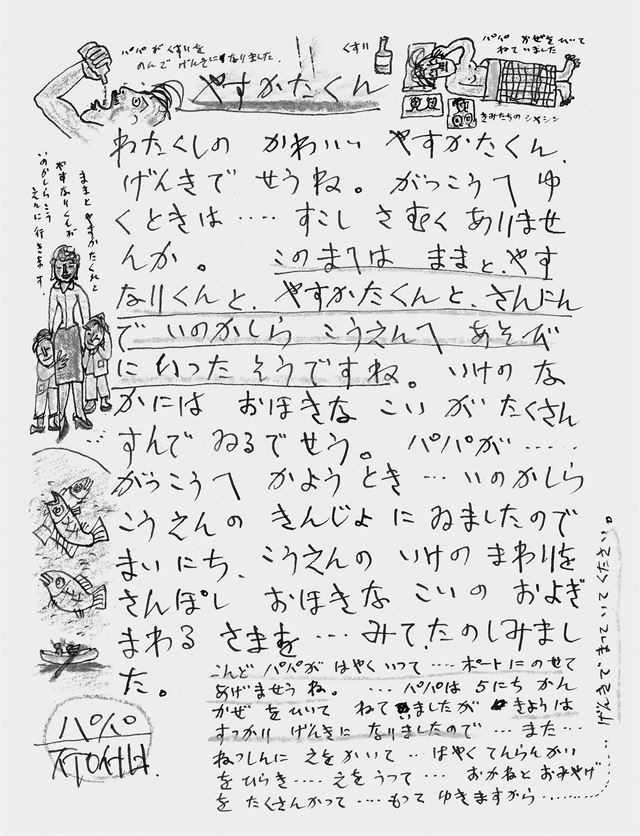 パパがくすりを
のんで げんきになりました.
やすかたくん
くすり
パパ かぜをひいて
ねていました
きみたちの シャシン
わたくしの かわいい やすかたくん.
げんきで せうね。がっこうへゆ
くときは…. すこし さむく ありませ
んか。 このまへは ままと、やす
なりくんと、やすかたくんと、さんにん
で いのかしら こうえんへ あそび
に いった そうですね。いけの な
かには おほきな こい が たくさん
すんで ゐるでせう。 パパが……
がっこうへ かよう とき… いのかしら
こうえんの きんじょ に ゐましたので
まいにち、こうえんの いけの まわりを
さんぽし おほきな こいの およぎ
まわる さまを … みて,たのしみまし
た。
ままと やすかたくんと
やすなりくんが
いのかしらこう
えんに行きます.
こんど パパが はやく いって …. ボートに のせて
あげませうね. … パパは 5にち かん
かぜ を ひいて ねて ゐましたが きようは
すっかり げんきに なりましたので … また…
ねっしんに えを かいて … はやく てんらんかい
を ひらき…. えを うって … おかねと おみやげ
を たくさんかって …. もって ゆきますから ………
げんきで まっていてください。
パパ
ㅈㅜㅇㅅㅓㅂ